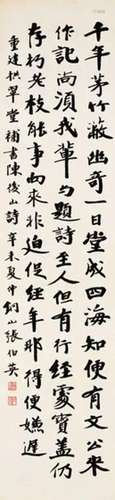 千年茅竹蔽幽奇一日堂成四海知便有文公來
作記尚須我輩与題詩主人但有行經處寶蓋仍
存朽老枝能事向來非迫促經年那得便嫌遲
重建拱翠堂補書陳後山詩辛未夏仲銅山張伯英